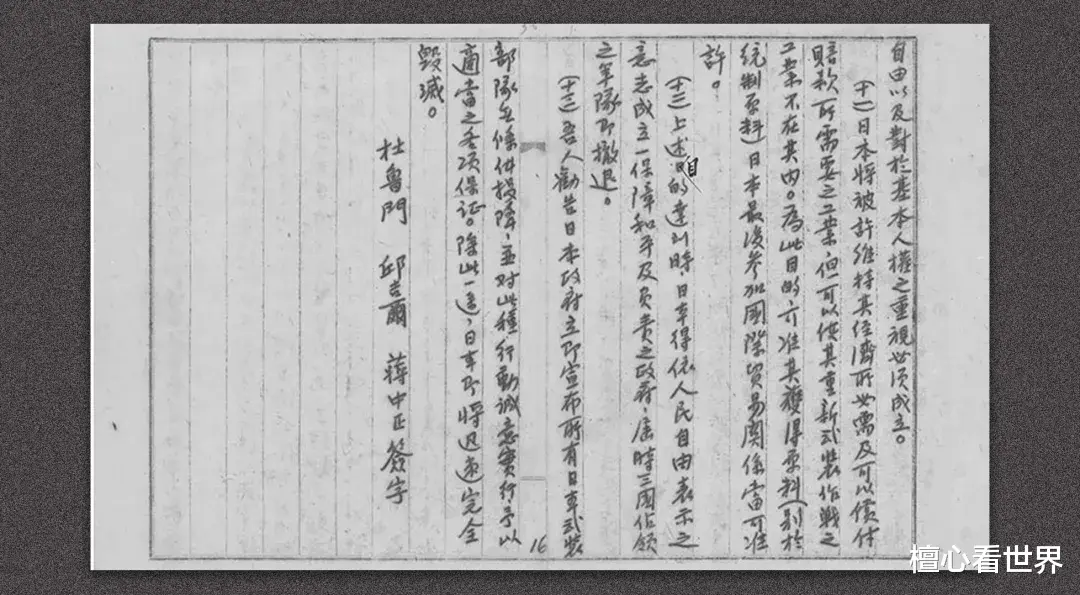 自由以及對於基本人權之重視必須成立。
(十一)日本將被許維持其經濟所必需及可以償付
賠款所需要之工業,但可以供其重新武裝作戰之
工業不在其內。為此目的,亦准其獲得原料(別於
統制原料)日本最後參加國際貿易關係當可准
許。
(十二)上述目的達到時日本得依人民自由表示之
意志成立一保障和平及負責之政府,屆時三國佔領
之軍隊即撤退。
(十三)吾人勸告日本政府立即宣布所有日本武裝
16
部隊無條件投降,並对此種行動誠意實行予以
適當之各項保证。除此一途,日本即將迅速完全
毀滅。
杜魯門 邱吉爾 蔣中正 簽字
檀心看世界